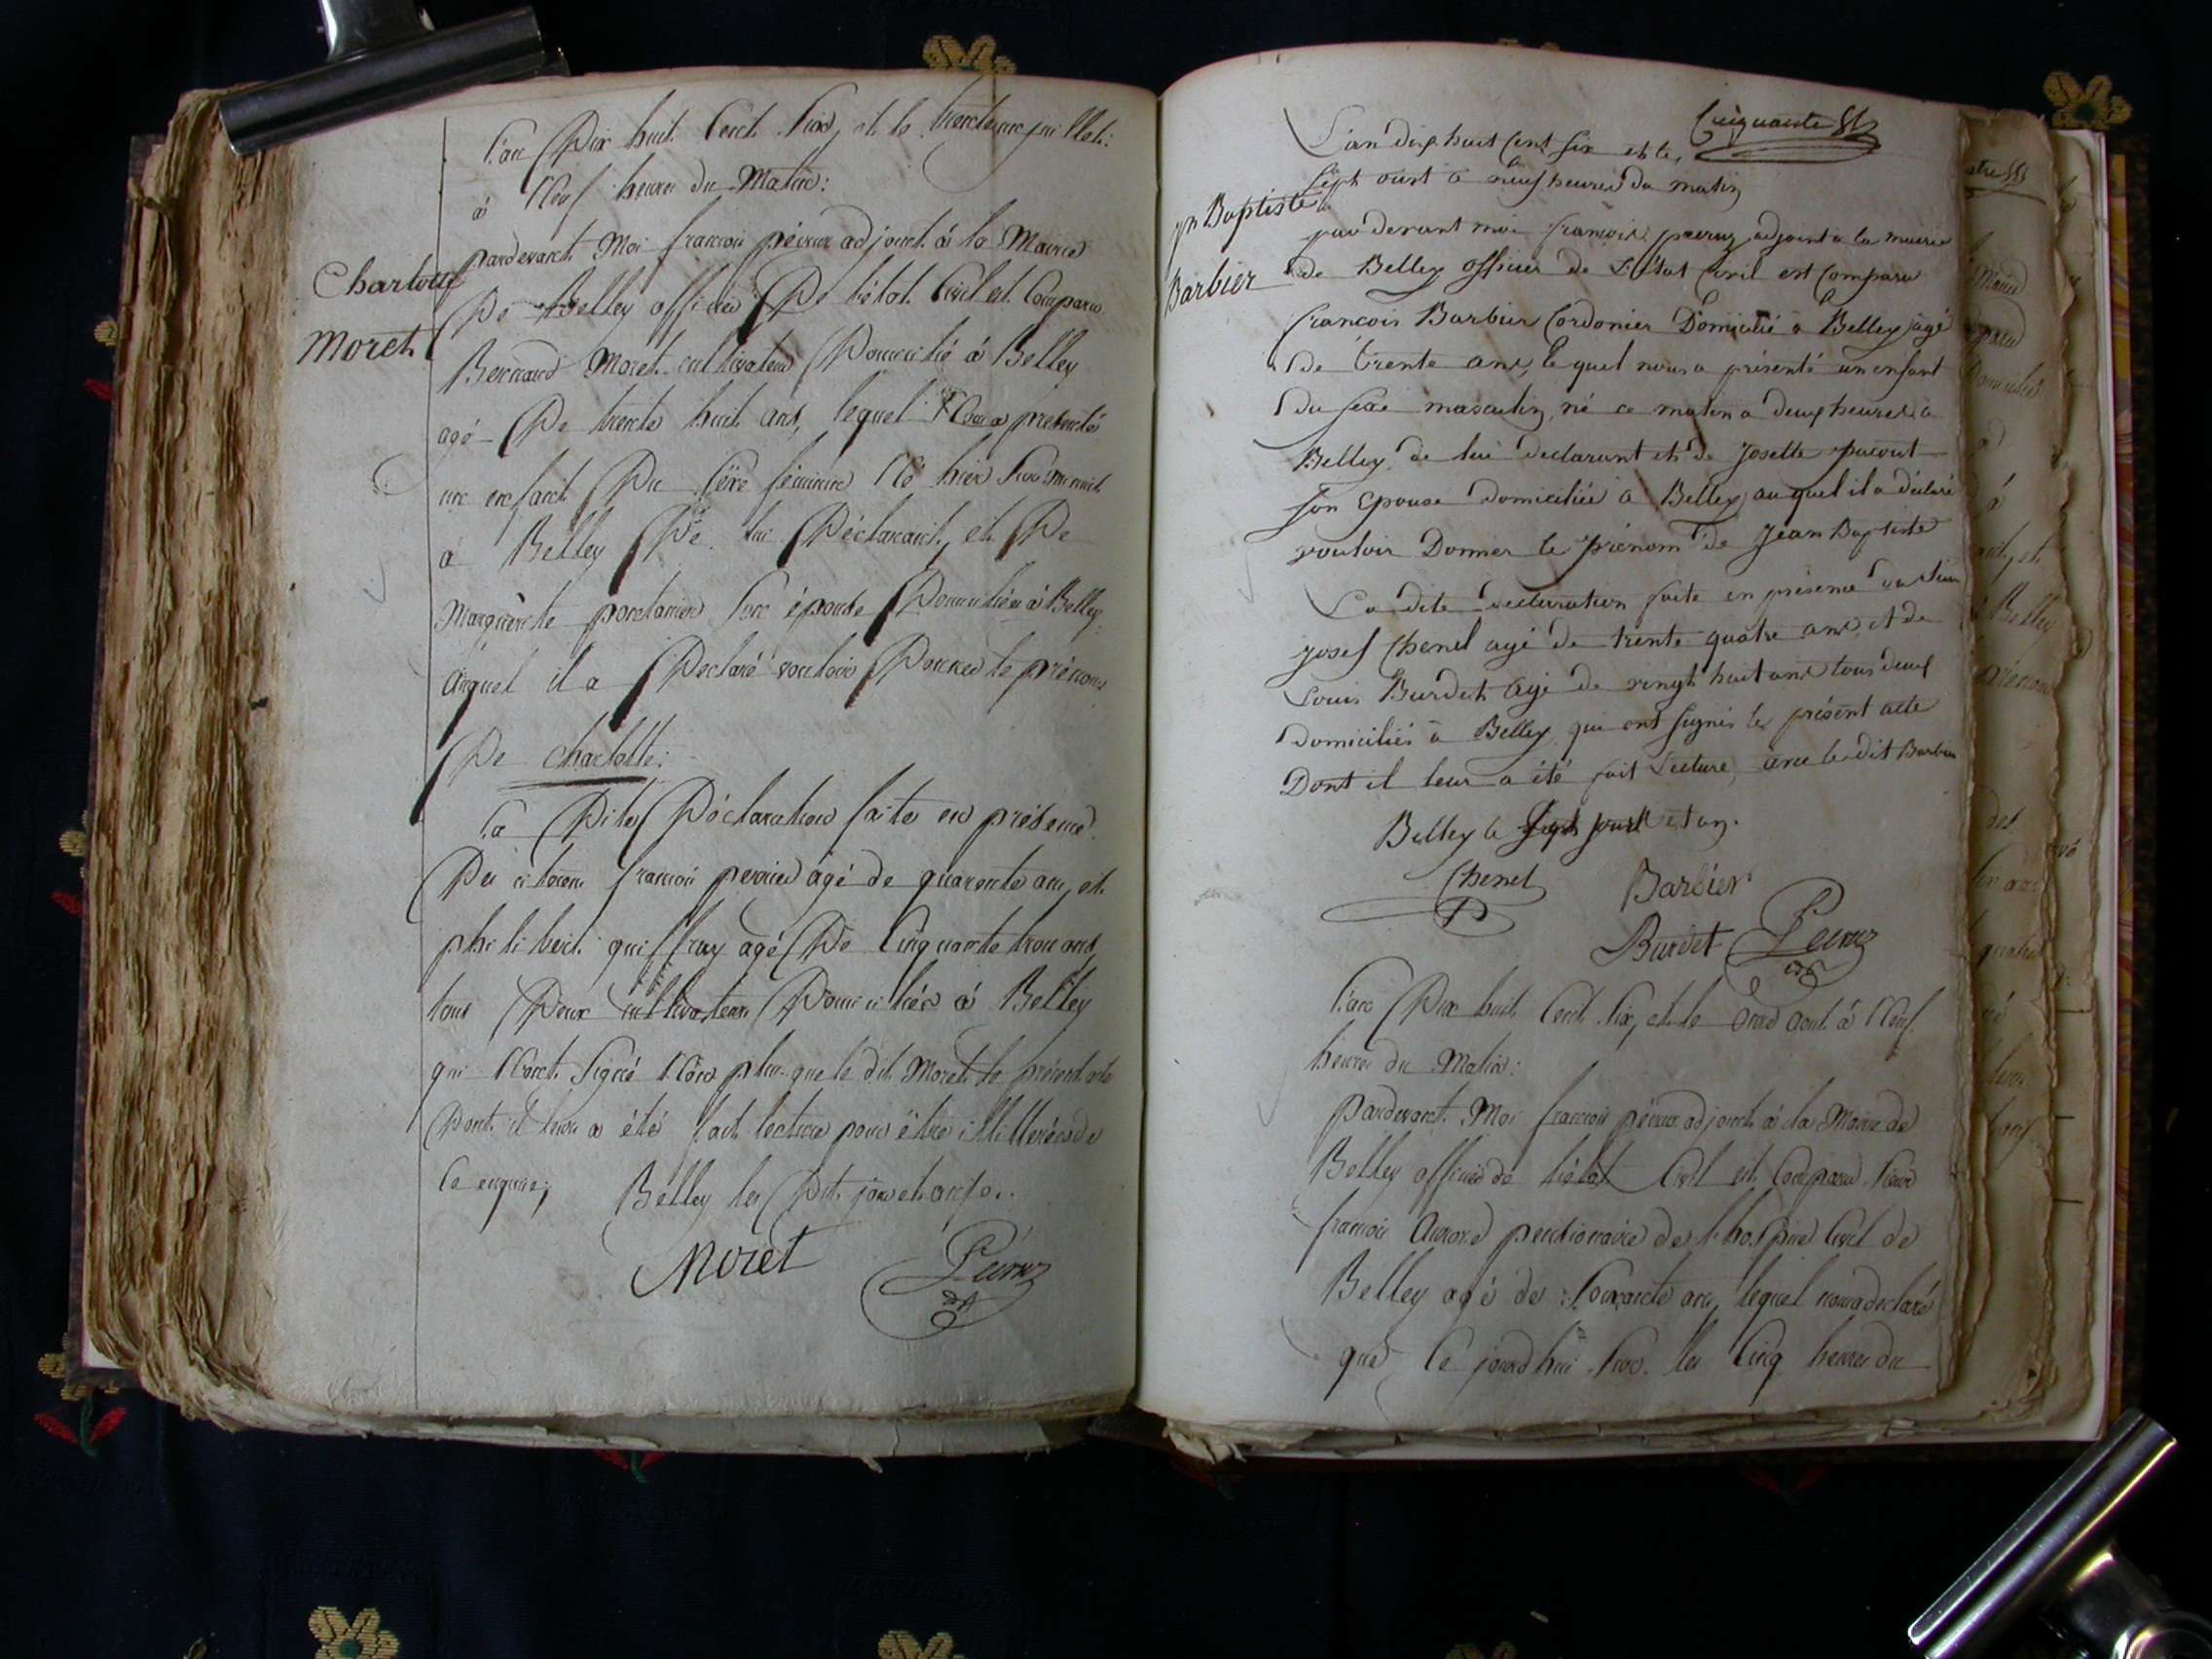 L'an Dix huit Cent Six, et le trente un juillet:
à Neuf heures du Matin:
pardevant Moi françois péeruz adjoint à la Mairie
Charlotte
De Belley officier De l'état Civil est Comparu
Moret
Bernard Moret cultivateur Domicilié à Belley
agé De trente huit ans, lequel Nous a présenté
un enfant Du Séxe féminin Né hier Sur minuit
à Belley De lui Déclarant, et De
Marguerite Son épouse Domiciliée à Belley
Auquel il a Déclaré vouloir Donner le prénom
De Charlotte:
La Dite Déclaration faite en présence
De françois perrier agé de quarente ans, et
philibert guiffray agé De Cinquante trois ans,
tous Deux cultivateurs Domiciliés à Belley
qui N'ont Signé Non plus que le dit Moret le présent acte
Dont il leur a été fait lecture pour être illitterés de
Ce enquis; Belley les Dit jour et an
Moret Péeruz
Cinquante
L'an dix huit Cent Six et le
Sept août à neuf heures du matin
Jn Baptiste
par devant moi françois péeruz adjoint a la mairie
Barbier
de Belley officier de L'état Civil est Comparu
francois Barbier Cordonier Domicilié à Belley agé
de trente ans, lequel nous a présenté un enfant
du sexe masculin, né ce matin a deux heures a
Belley de lui déclarant et de Josette pacout
son Epouse domiciliée à Belley auquel il a déclaré
vouloir Donner le prénom de Jean Baptiste
La dite déclaration faite en présence du Sieur
Josef Chenel agé de trente quatre ans, et de
Louis Burdet agé de vingt huit ans tous deux
domiciliés à Belley qui ont signés le présent acte
Dont il leur a été fait Lecture, avec le dit Barbier
Belley le Sept jour et an.
Chenel Barbier
Burdet Péeruz
L'an Dix huit Cent Six, et le août à Neuf
heures du Matin:
pardevant Moi françois péeruz adjoint à la Mairie de
Belley officier de l'état Civil est Comparu Sieur
françois pentionaire de l'hospice Civil de
Belley agé de Soixante ans, lequel nous a déclaré
que Ce jourd'hui Sur les Cinq heures du